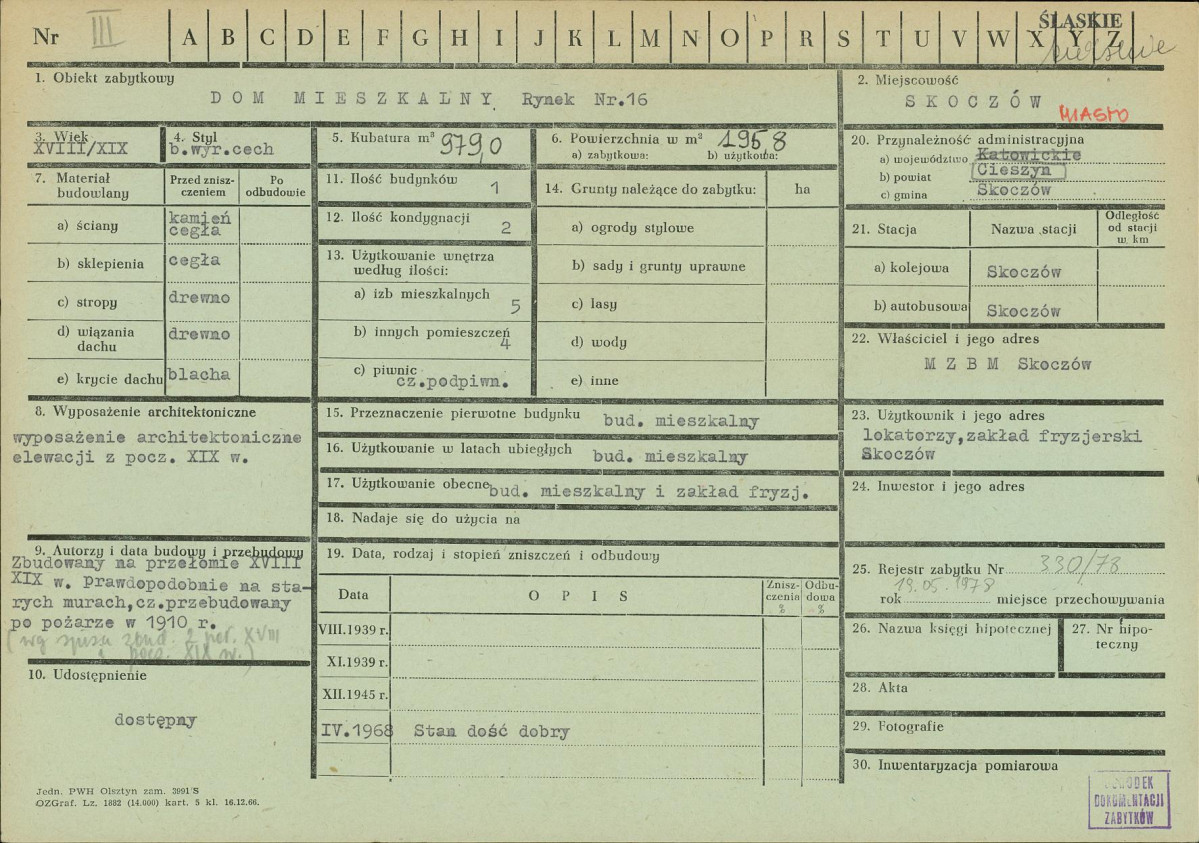 Nr III A B C D E F G H I J K L M N O P R S T U V W X Y Z ŚLĄSKIE
1. Obiekt zabytkowy
DOM MIESZKALNY Rynek Nr.16
2. Miejscowość
SKOCZÓW
MIASTO
3. Wiek
XVIII/XIX
4. Styl
b.wyr.cech
5. Kubatura m³ 979,0
6. Powierzchnia w m² 195 8
a) zabytkowa: b) użytkowa:
7. Materiał budowlany
Przed zniszczeniem
Po odbudowie
a) ściany kamień cegła
b) sklepienia cegła
c) stropy drewno
d) wiązania dachu drewno
e) krycie dachu blacha
8. Wyposażenie architektoniczne
wyposażenie architektoniczne
elewacji z pocz. XIX w.
9. Autorzy i data budowy i przebudowy
Zbudowany na przełomie XVIII
XIX w. prawdopodobnie na sta-
rych murach,cz.przebudowany
po pożarze w 1910 r.
(wg spisu zbud. 2 poł. XVIII
i pocz. XIX w.)
10. Udostępnienie
dostępny
11. Ilość budynków 1
12. Ilość kondygnacji 2
13. Użytkowanie wnętrza
według ilości:
a) izb mieszkalnych 5
b) innych pomieszczeń 4
c) piwnic cz.podpiwn.
14. Grunty należące do zabytku: ha
a) ogrody stylowe
b) sady i grunty uprawne
c) lasy
d) wody
e) inne
15. Przeznaczenie pierwotne budynku bud. mieszkalny
16. Użytkowanie w latach ubiegłych bud. mieszkalny
17. Użytkowanie obecne bud. mieszkalny i zakład fryzj.
18. Nadaje się do użycia na
19. Data, rodzaj i stopień zniszczeń i odbudowy
Data OPIS Znisz-czenia % Odbu-dowa %
VIII.1939 r.
XI.1939 r.
XII.1945 r.
IV.1968 Stan dość dobry
20. Przynależność administracyjna
a) województwo Katowickie
b) powiat Cieszyn
c) gmina Skoczów
21. Stacja Nazwa stacji Odległość od stacji w km
a) kolejowa Skoczów
b) autobusowa Skoczów
22. Właściciel i jego adres
M Z B M Skoczów
23. Użytkownik i jego adres
lokatorzy,zakład fryzjerski
Skoczów
24. Inwestor i jego adres
25. Rejestr zabytku Nr 330/78
rok 19.05.1978 miejsce przechowywania
26. Nazwa księgi hipotecznej
27. Nr hipo-
teczny
28. Akta
29. Fotografie
30. Inwentaryzacja pomiarowa
Jedn. PWH Olsztyn zam. 3991/S
OZGraf. Lz. 1882 (14.000) kart. 5 kl. 16.12.66.
OŚRODEK
DOKUMENTACJI
ZABYTKÓW